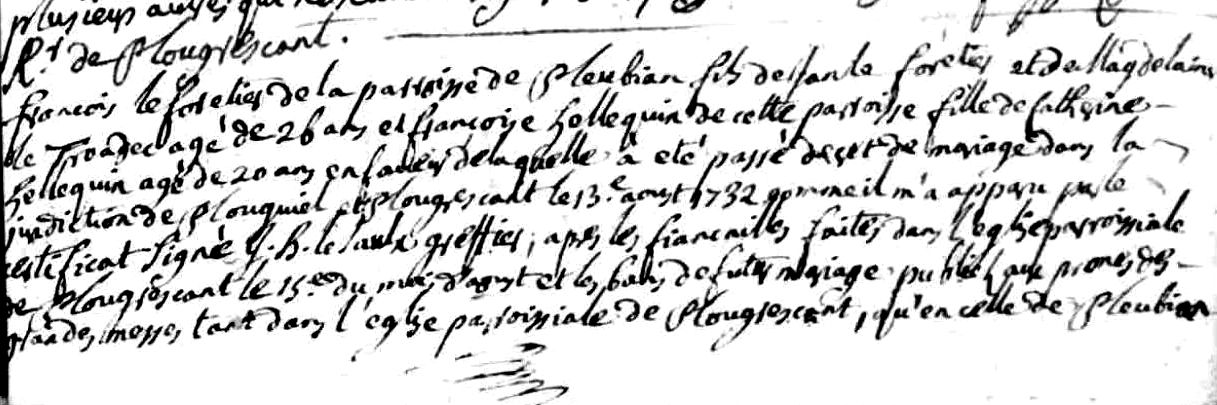 plusieurs autres qui
R.r de Plougrescant.
francois le foretier de la parroisse de Pleubian fils de Jan le foretier et de Magdelaine
le Troadec agé de 26 ans et françoise hellequin de cette parroisse fille de Catherine
hellequin agé de 20 ans en faveur de laquelle à eté passé decret de mariage dans la
juridiction de Plouguiel et Plougrescant le 13.e aoust 1732 comme il m'a apparu par le
certificat signé h. le greffier, apres les fiançailles faites dans l'eglise parroissiale
de Plougrescant le 15.e du mois d'aoust et les bans de futur mariage publiés aux prones des
grandes messes tant dans l'eglise parroissiale de Plougrescant, qu'en celle de Pleubian